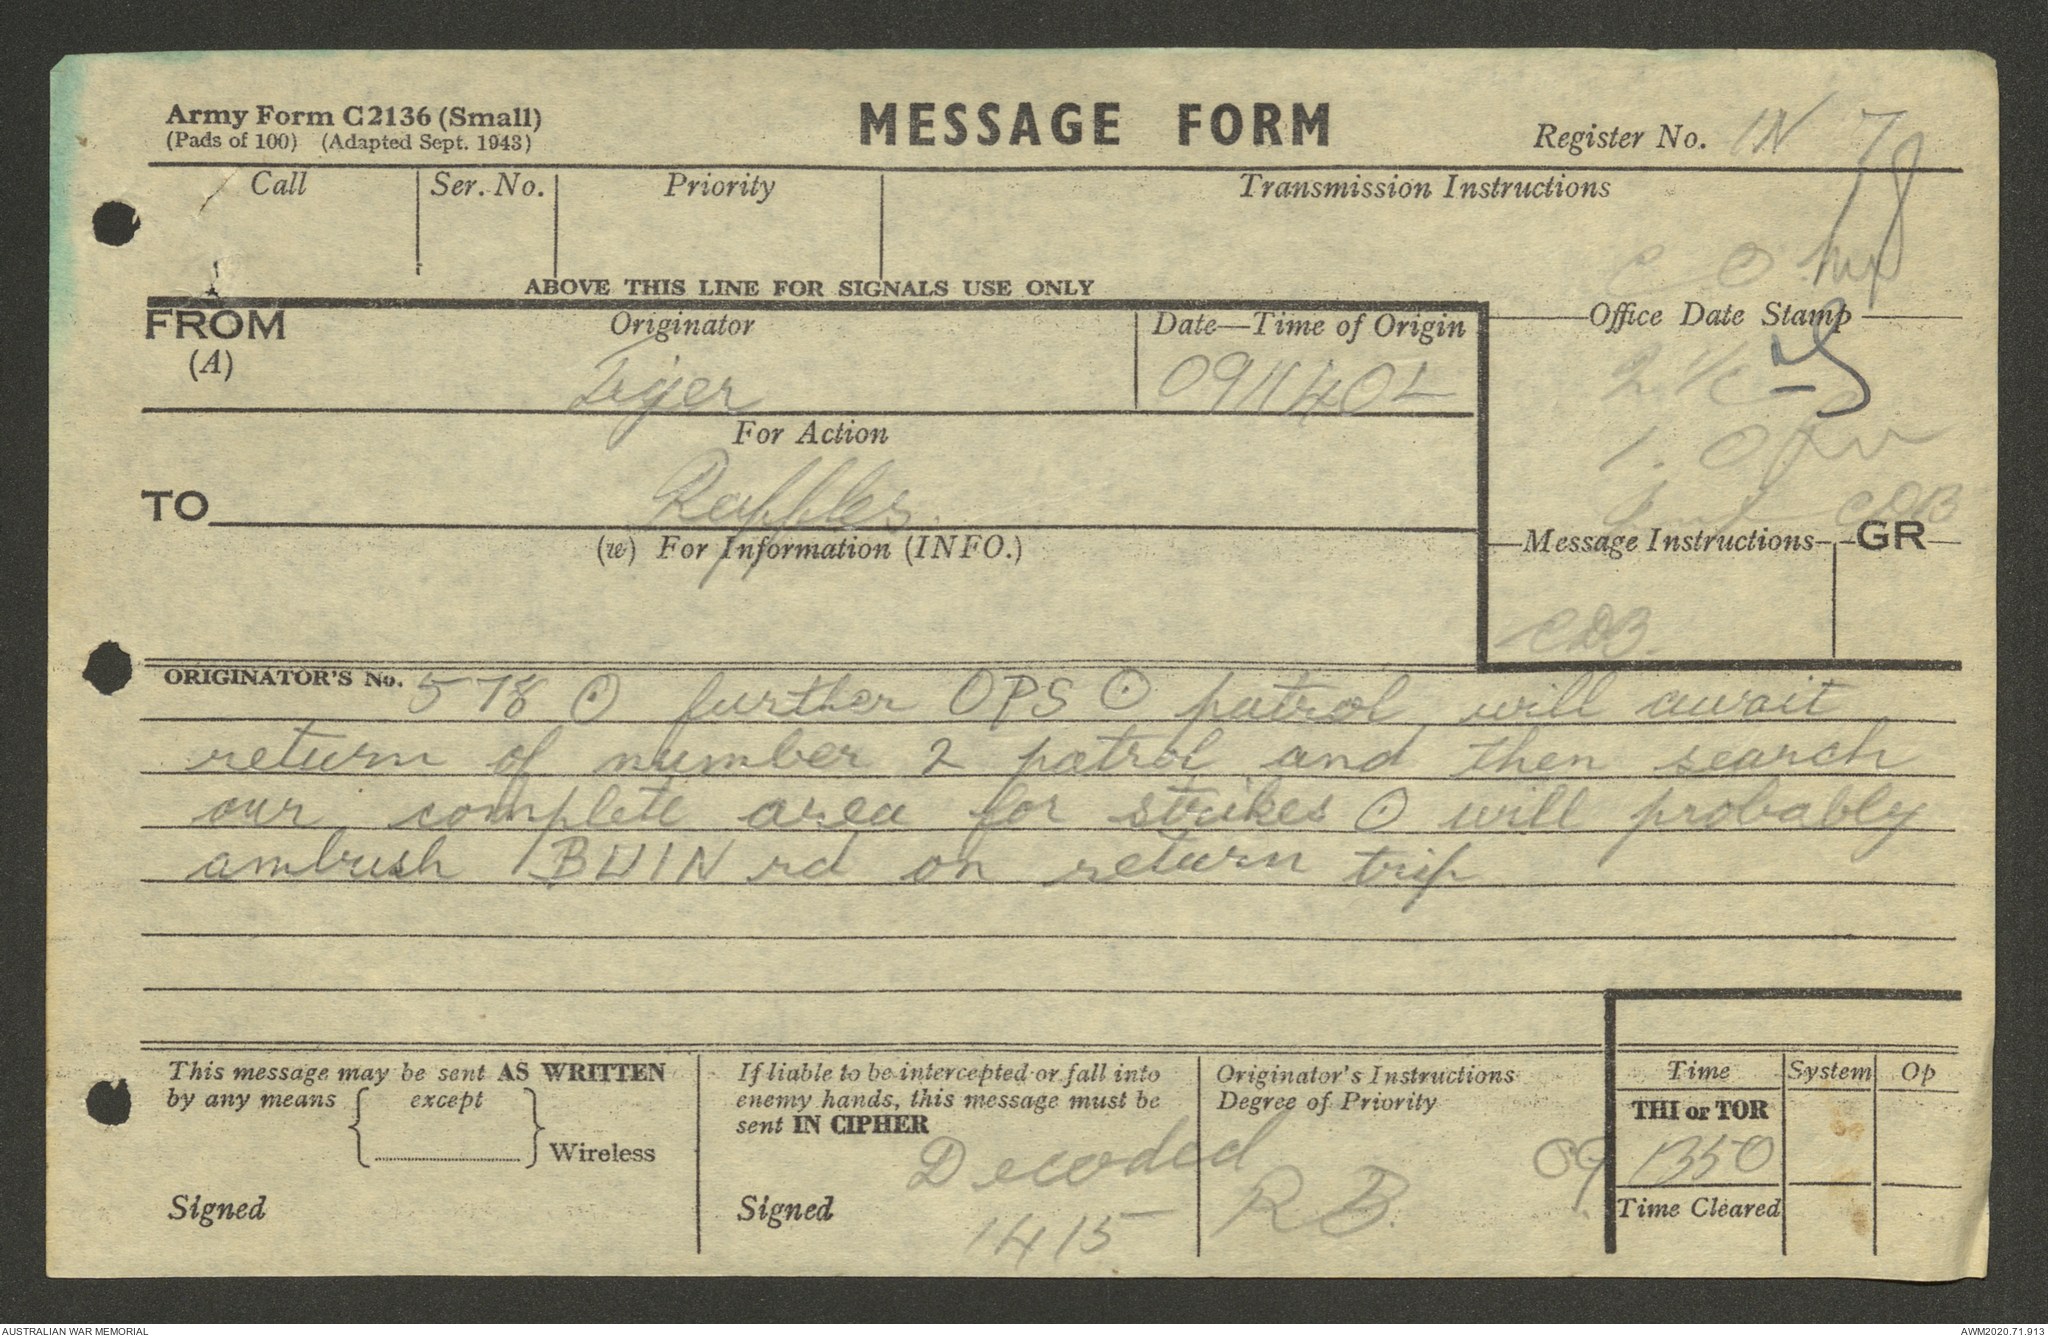 Army Form C2136 (Small)
(Pads of 100) (Adapted Sept. 1943)
MESSAGE FORM
Register No. IN 78
Call
Ser. No.
Priority
Transmission Instructions
C O
ABOVE THIS LINE FOR SIGNALS USE ONLY
FROM
(A)
Originator
Tiger
Date—Time of Origin
091140L
Office Date Stamp
2 I/C
I.O
For Action
TO
Raffles
CDB
(w) For Information (INFO.)
Message Instructions
GR
CDB.
ORIGINATOR'S No. 578 ⊙ further OPS ⊙ patrol will await
return of number 2 patrol and then search
our complete area for strikes ⊙ will probably
ambush BUIN rd on return trip
This message may be sent AS WRITTEN
by any means except
Wireless
Signed
If liable to be intercepted or fall into
enemy hands, this message must be
sent IN CIPHER
Decoded
Signed
1415
Originator's Instructions
Degree of Priority
RB
09
Time
System
Op
THI or TOR
1350
Time Cleared
AUSTRALIAN WAR MEMORIAL
AWM2020.71.913